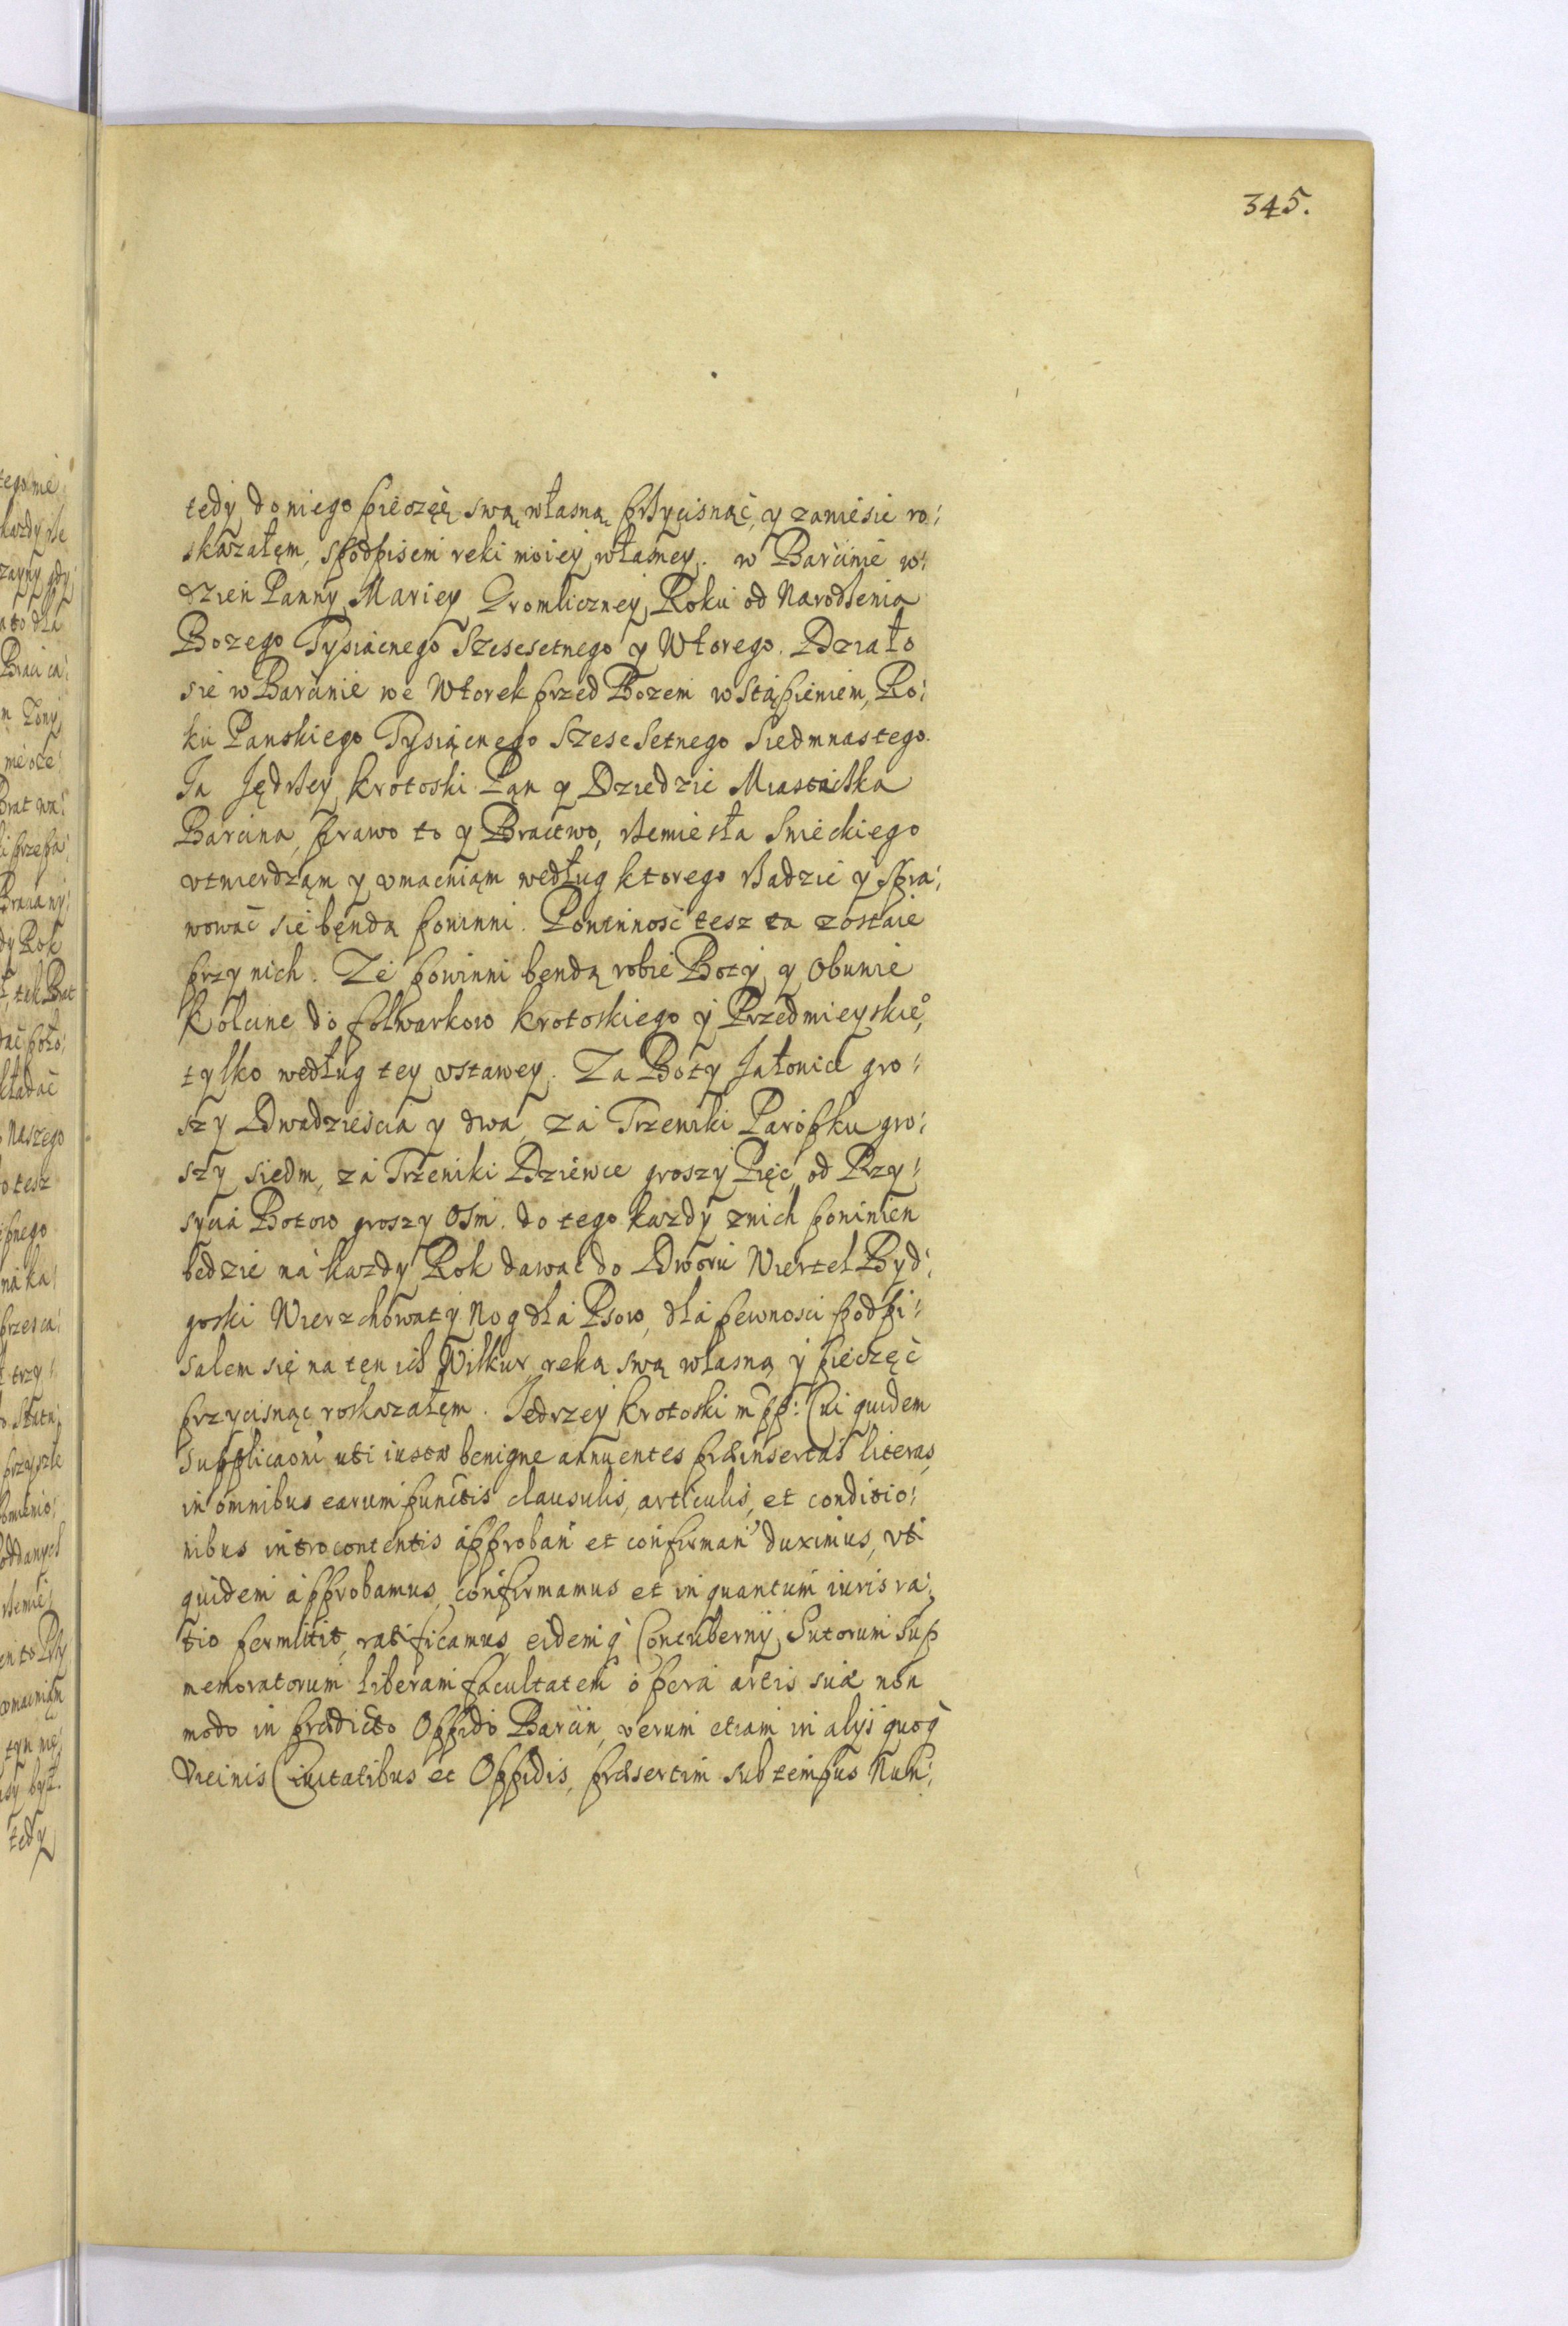 345.
tedy do niego pieczęć swą własną przycisnąć, y zawiesic ro:
skazałęm, spodpisem reki moiey własney. w Barcinie w:
dzien Panny Mariey Gromliczney Roku od Narodzenia
Bozego Tysiącnego Szescsetnego y Wtorego. Działo
sie w Barcinie we Wtorek przed Bozem wstąpieniem, Ro:
ku Panskiego Tysiącnego Szescsetnego Siedmnastego.
Ja Jędrzey Krotoski Pąn y Dziedzic Miastaczka
Barcina, prawo to y Bractwo, rzemiesła Swieckiego
vtwierdząm y vmacniąm według ktorego rządzic y spra:
wowac sie bęndą powinni. Powinnosc tesz ta zostaie
przy nich. Ze powinni bendą robic Boty y Obuwie
Kolcine do folwarkow Krotoskiego y Przedmieyskieo,
tylko według tey vstawey. Za Boty Jałowice gro:
szy Dwadziescia y dwa, za Trzewiki Paropku gro:
szy siedm, za Trzewiki Dziewce groszy Pięc, od Przy:
sycia Botow groszy Osm. do tego kazdy znich powinien
będzie na kazdy Rok dawac do Dworu Wiertel Byd:
goski Wierzchowaty Nog dla Psow, dla pewnosci podpi:
salem się na tęn ich Wilkur reką swą własną y pieczęc
przycisnąc roskazałęm. Jedrzey Krotoski mpp: Cui quidem
supplicaoni uti iustæ benigne annuentes præinsertas literas,
in omnibus earum punctis clausulis, articulis, et conditio:
nibus introcontentis approban et confirman duximus, vti
quidem approbamus, confirmamus et in quantum iuris ra:
tio permittit, ratificamus, eidemq Contubernij Sutorum sup
memoratorum liberam facultatem opera artis suæ non
modo in prædicto Oppido Barcin, verum etiam in alijs quoq
Vicinis Civitatibus et Oppidis, præsertim sub tempus Nun: